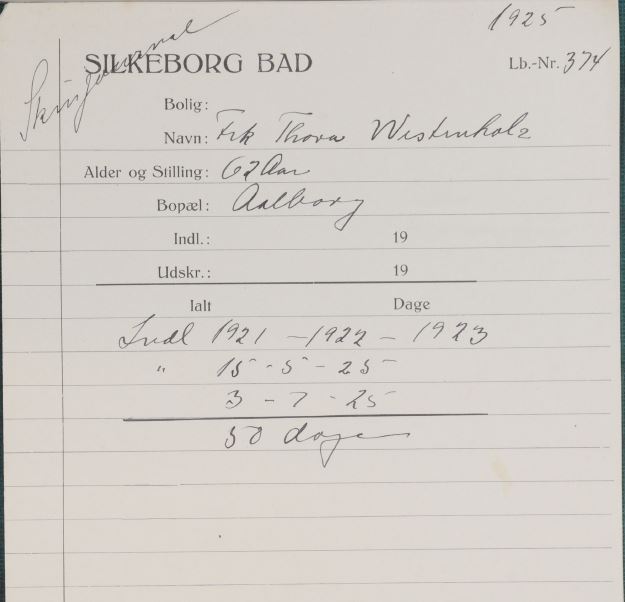 1925
Skrivjournal
SILKEBORG BAD
Lb.-Nr. 374
Bolig:
Navn: Frk Thora Westenholz
Alder og Stilling: 62 Aar
Bopæl: Aalborg
Indl.: 19
Udskr.: 19
Ialt Dage
Indl 1921 - 1922 - 1923
" 15 - 5 - 25
3 - 7 - 25
50 dage